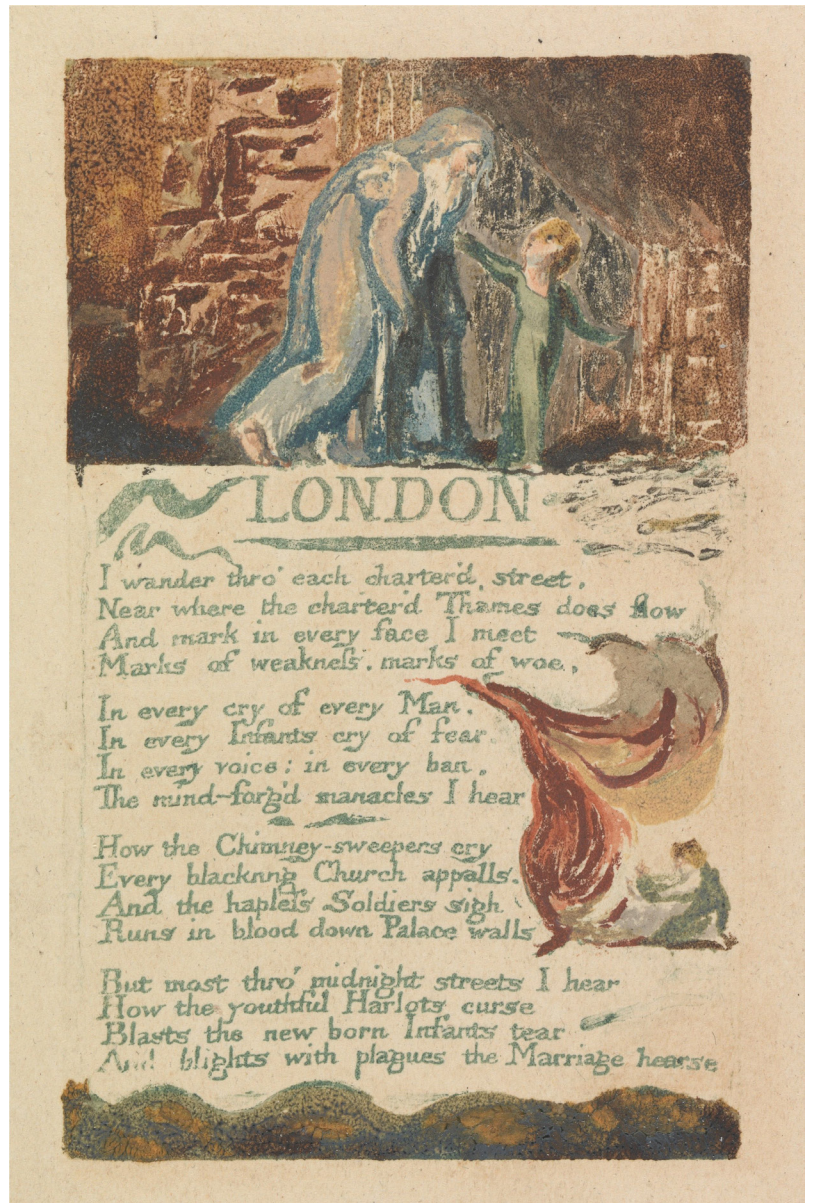 LONDON
I wander thro' each charter'd street,
Near where the charter'd Thames does flow
And mark in every face I meet
Marks of weakneſs, marks of woe.
In every cry of every Man,
In every Infants cry of fear,
In every voice; in every ban,
The mind-forg'd manacles I hear
How the Chimney-sweepers cry
Every blackning Church appalls,
And the hapleſs Soldiers sigh
Runs in blood down Palace walls
But most thro' midnight streets I hear
How the youthful Harlots curse
Blasts the new born Infants tear
And blights with plagues the Marriage hearse